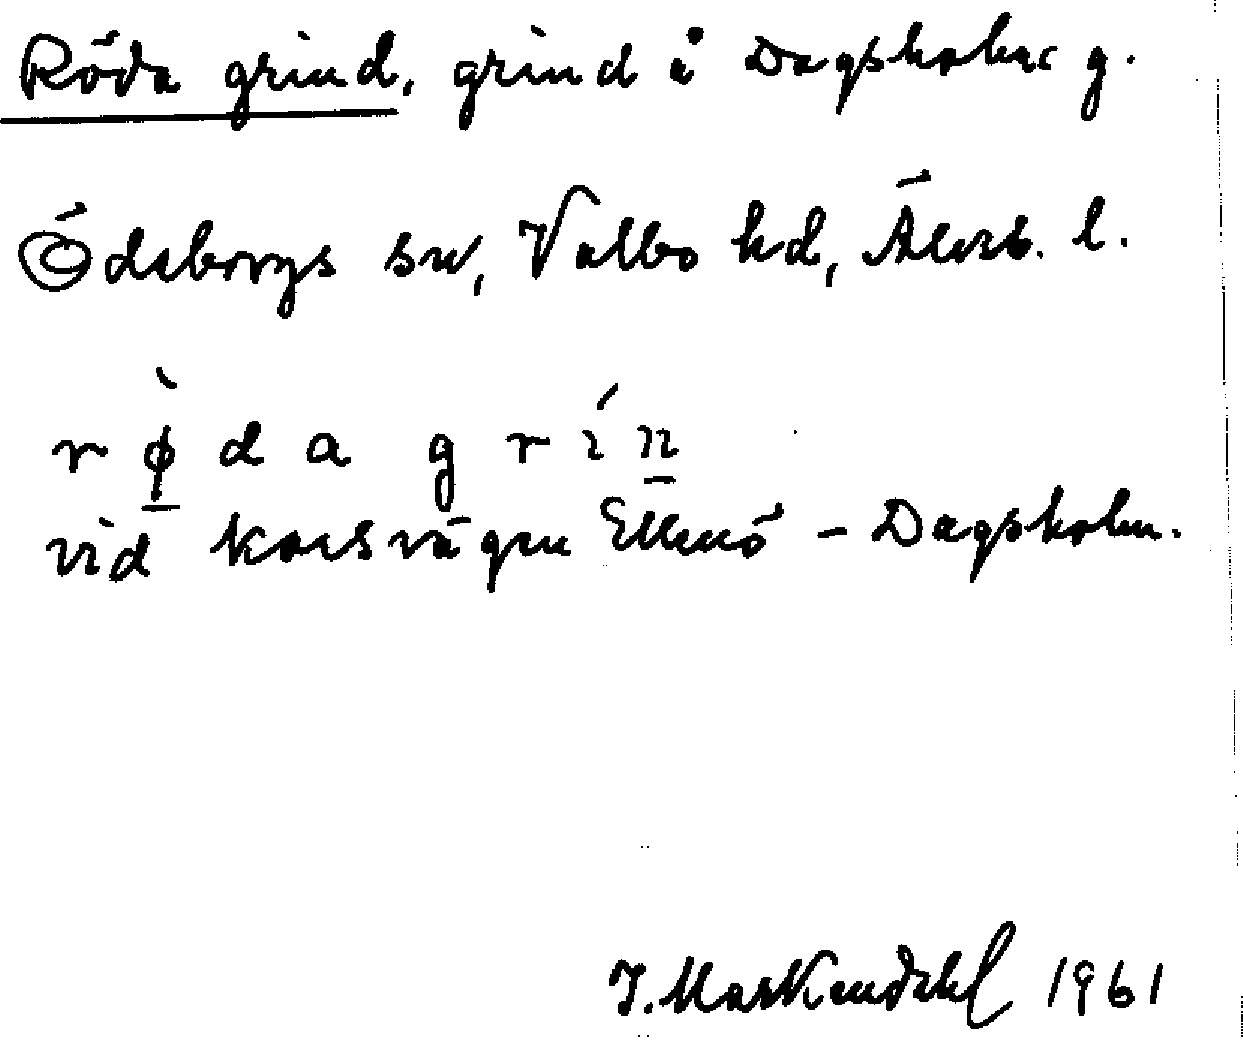 Röda grind, grind å Dagsholms g.
Ödsborgs sn, Valbo hd, Älvsb. l.
r ø̀ d a g r ı́ n
vid korsvägen Ellenö – Dagsholm.
J. Markendahl 1961